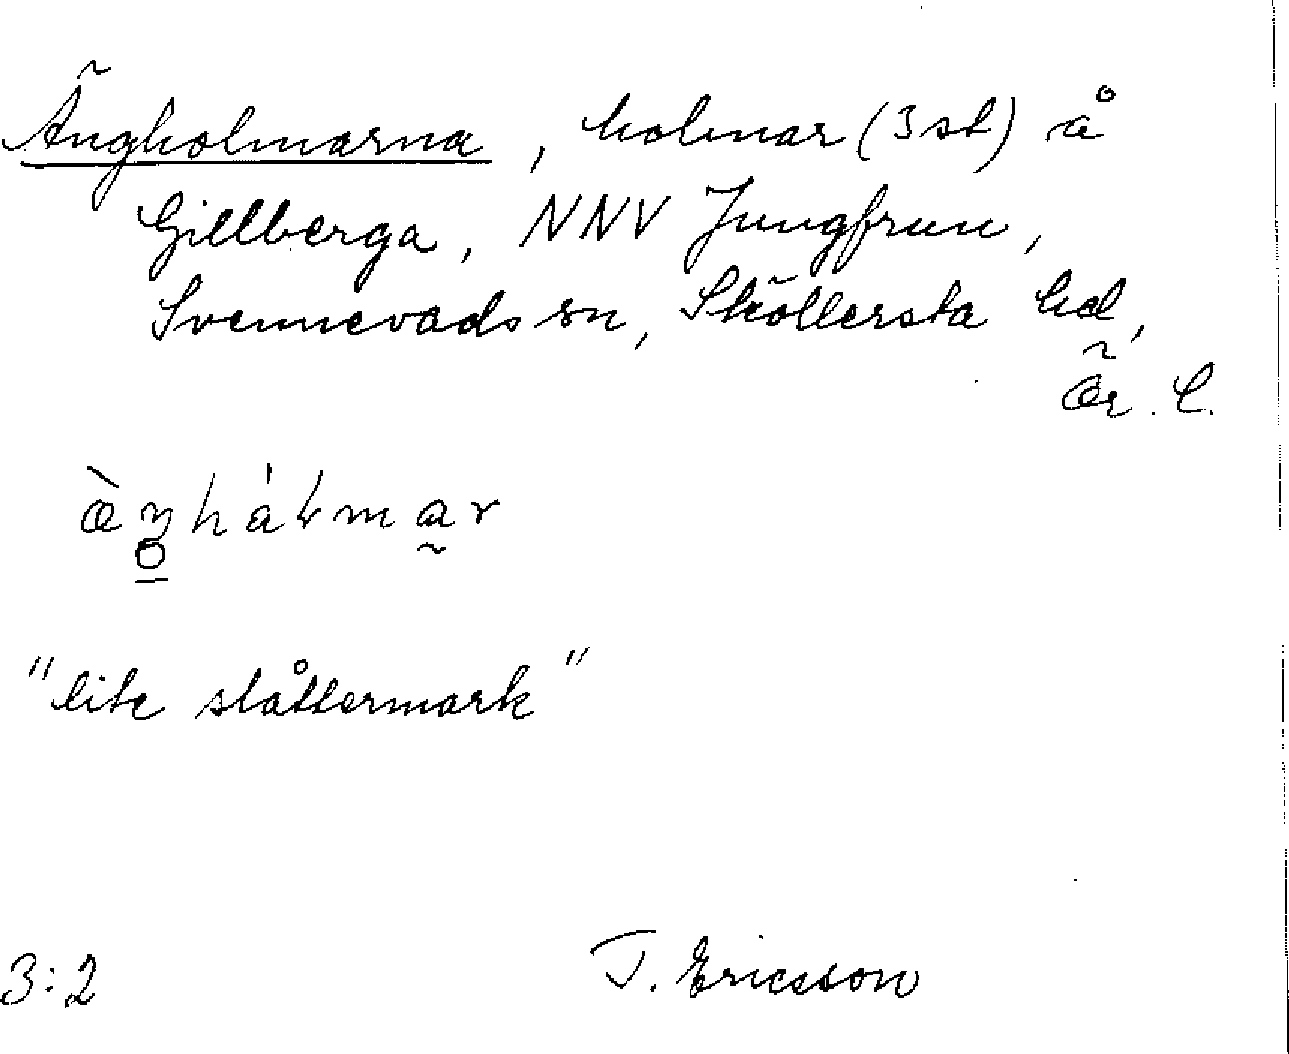 Ängholmarna, holmar (3 st) å
Gillberga, NNV Jungfrun,
Svennevads sn, Sköllersta hd,
Ör. l.
"lite slåttermark"
3:2 T. Ericsson